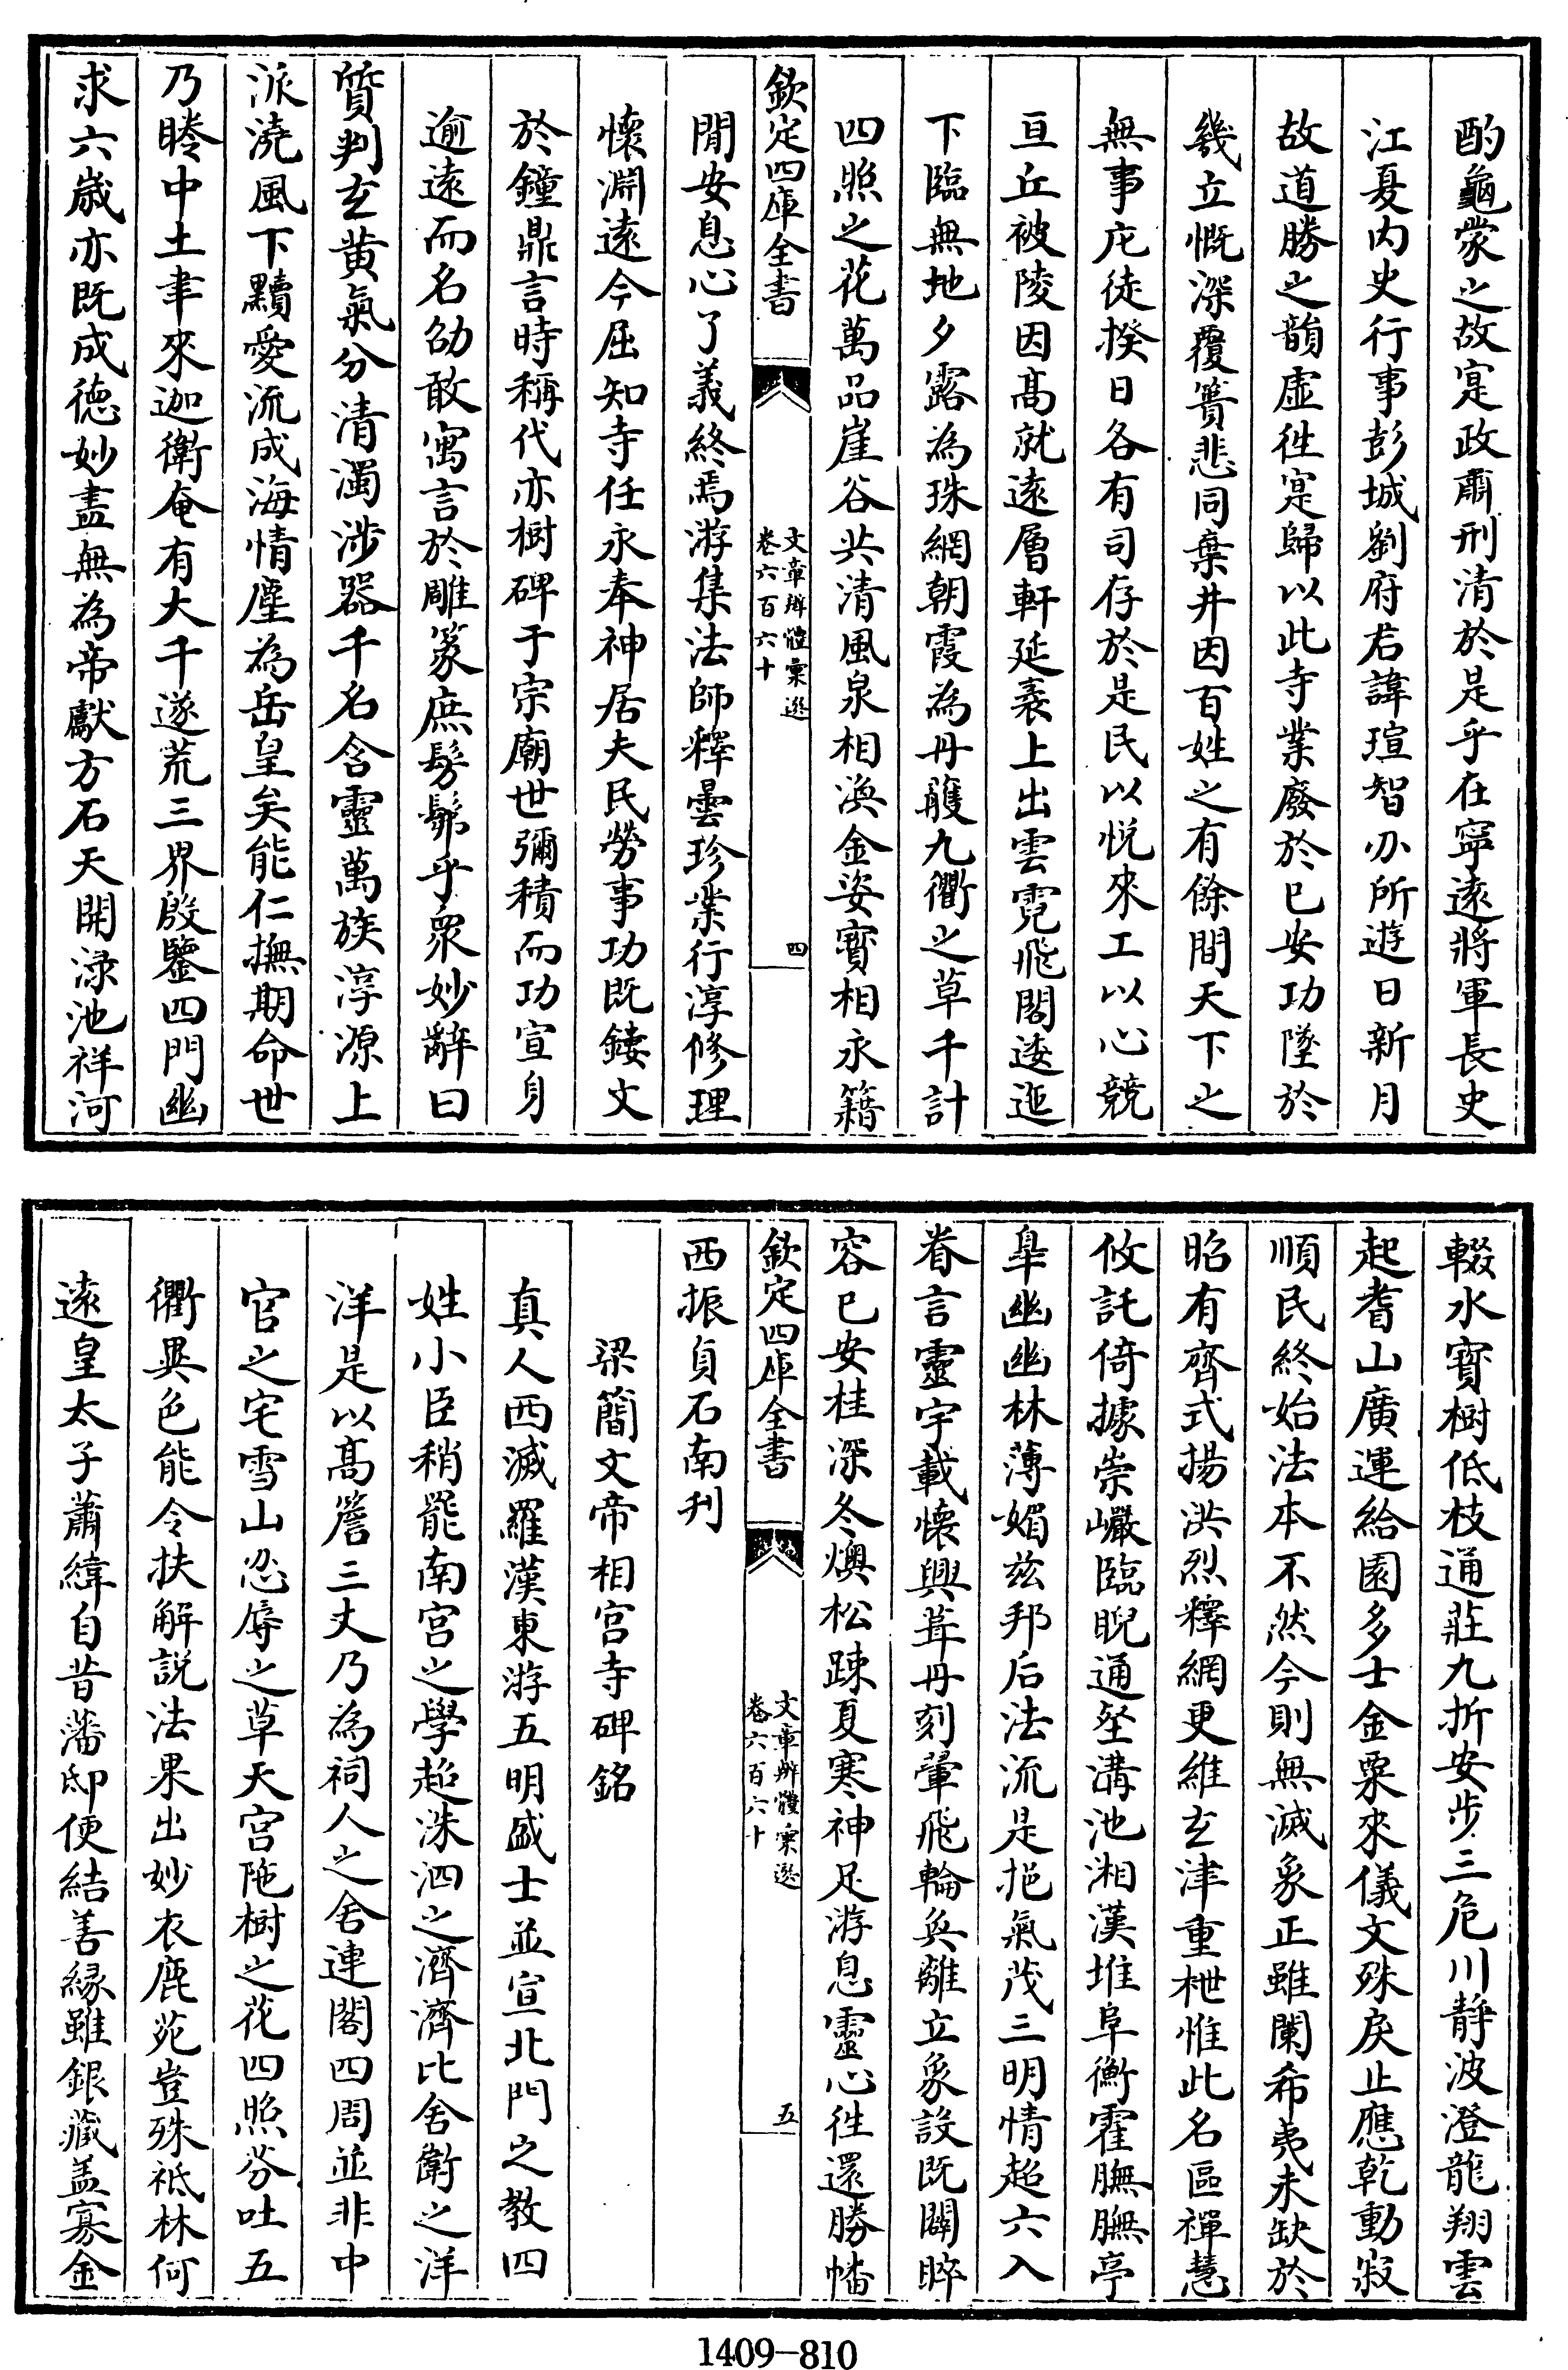 酌龜蒙之故寔政肅刑清於是乎在寧遠將軍長史
江夏内史行事彭城劉府君諱瑄智刅所遊日新月
故道勝之韻虛徃寔歸以此寺業廢於已安功墜於
幾立慨深覆簣悲同棄井因百姓之有餘間天下之
無事庀徒揆日各有司存於是民以悦來工以心競
亘丘被陵因髙就逺層軒延袤上出雲霓飛閣逶迤
下臨無地夕露為珠網朝霞為丹雘九衢之草千計
四照之花萬品崖谷共清風泉相渙金姿寳相永籍
欽定四庫全書
文章辨體彚選
卷六百六十
四
閒安息心了義終焉游集法師釋曇珍業行淳修理
懷淵逺今屈知寺任永奉神居夫民勞事功既鏤文
於鐘鼎言時稱代亦樹碑于宗廟世彌積而功宣身
逾逺而名劭敢寓言於雕篆庶髣髴乎衆妙辭曰
質判玄黄氣分清濁渉器千名含靈萬族淳源上
派澆風下黷愛流成海情塵為岳皇矣能仁撫期命世
乃睠中土聿來迦衛奄有大千遂荒三界殷鑒四門幽
求六歲亦既成徳妙盡無為帝獻方石天開渌池祥河
輟水寳樹低枝通莊九折安步三危川靜波澄龍翔雲
起耆山廣運給園多士金粟來儀文殊戾止應乾動寂
順民終始法本不然今則無滅象正雖闌希夷未缺於
昭有齊式揚洪烈釋網更維玄津重枻惟此名區禪慧
攸託倚據崇巘臨睨通壑溝池湘漢堆阜衡霍膴膴亭
臯幽幽林薄媚兹邦后法流是挹氣茂三明情超六入
眷言靈宇載懷興葺丹刻翬飛輪奐離立象設既闢睟
容已安桂深冬燠松疎夏寒神足游息靈心徃還勝幡
欽定四庫全書
文章辨體彚選
卷六百六十
五
西振貞石南刋
梁簡文帝相宫寺碑銘
真人西滅羅漢東游五明盛士並宣北門之教四
姓小臣稍罷南宫之學超洙泗之濟濟比舍衛之洋
洋是以髙簷三丈乃為祠人之舍連閣四周並非中
官之宅雪山忍辱之草天宫陁樹之花四照芬吐五
衢異色能令扶解説法果出妙衣鹿苑豈殊祗林何
逺皇太子蕭緯自昔藩邸便結善縁雖銀藏盖寡金
1409—810